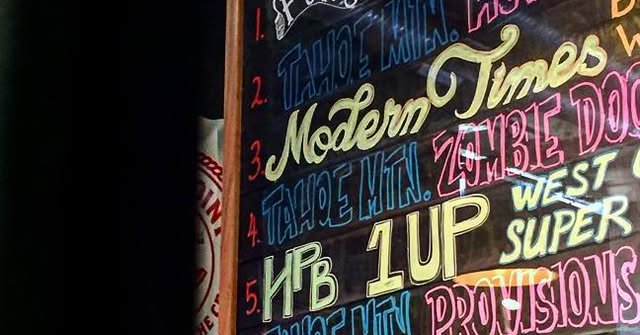 1.
2. TAHOE MTN.
3. Modern Times
4. TAHOE MTN. ZOMBIE
5. HPB 1UP WEST
SUPER
TAHOE MTN. PROVISIONS